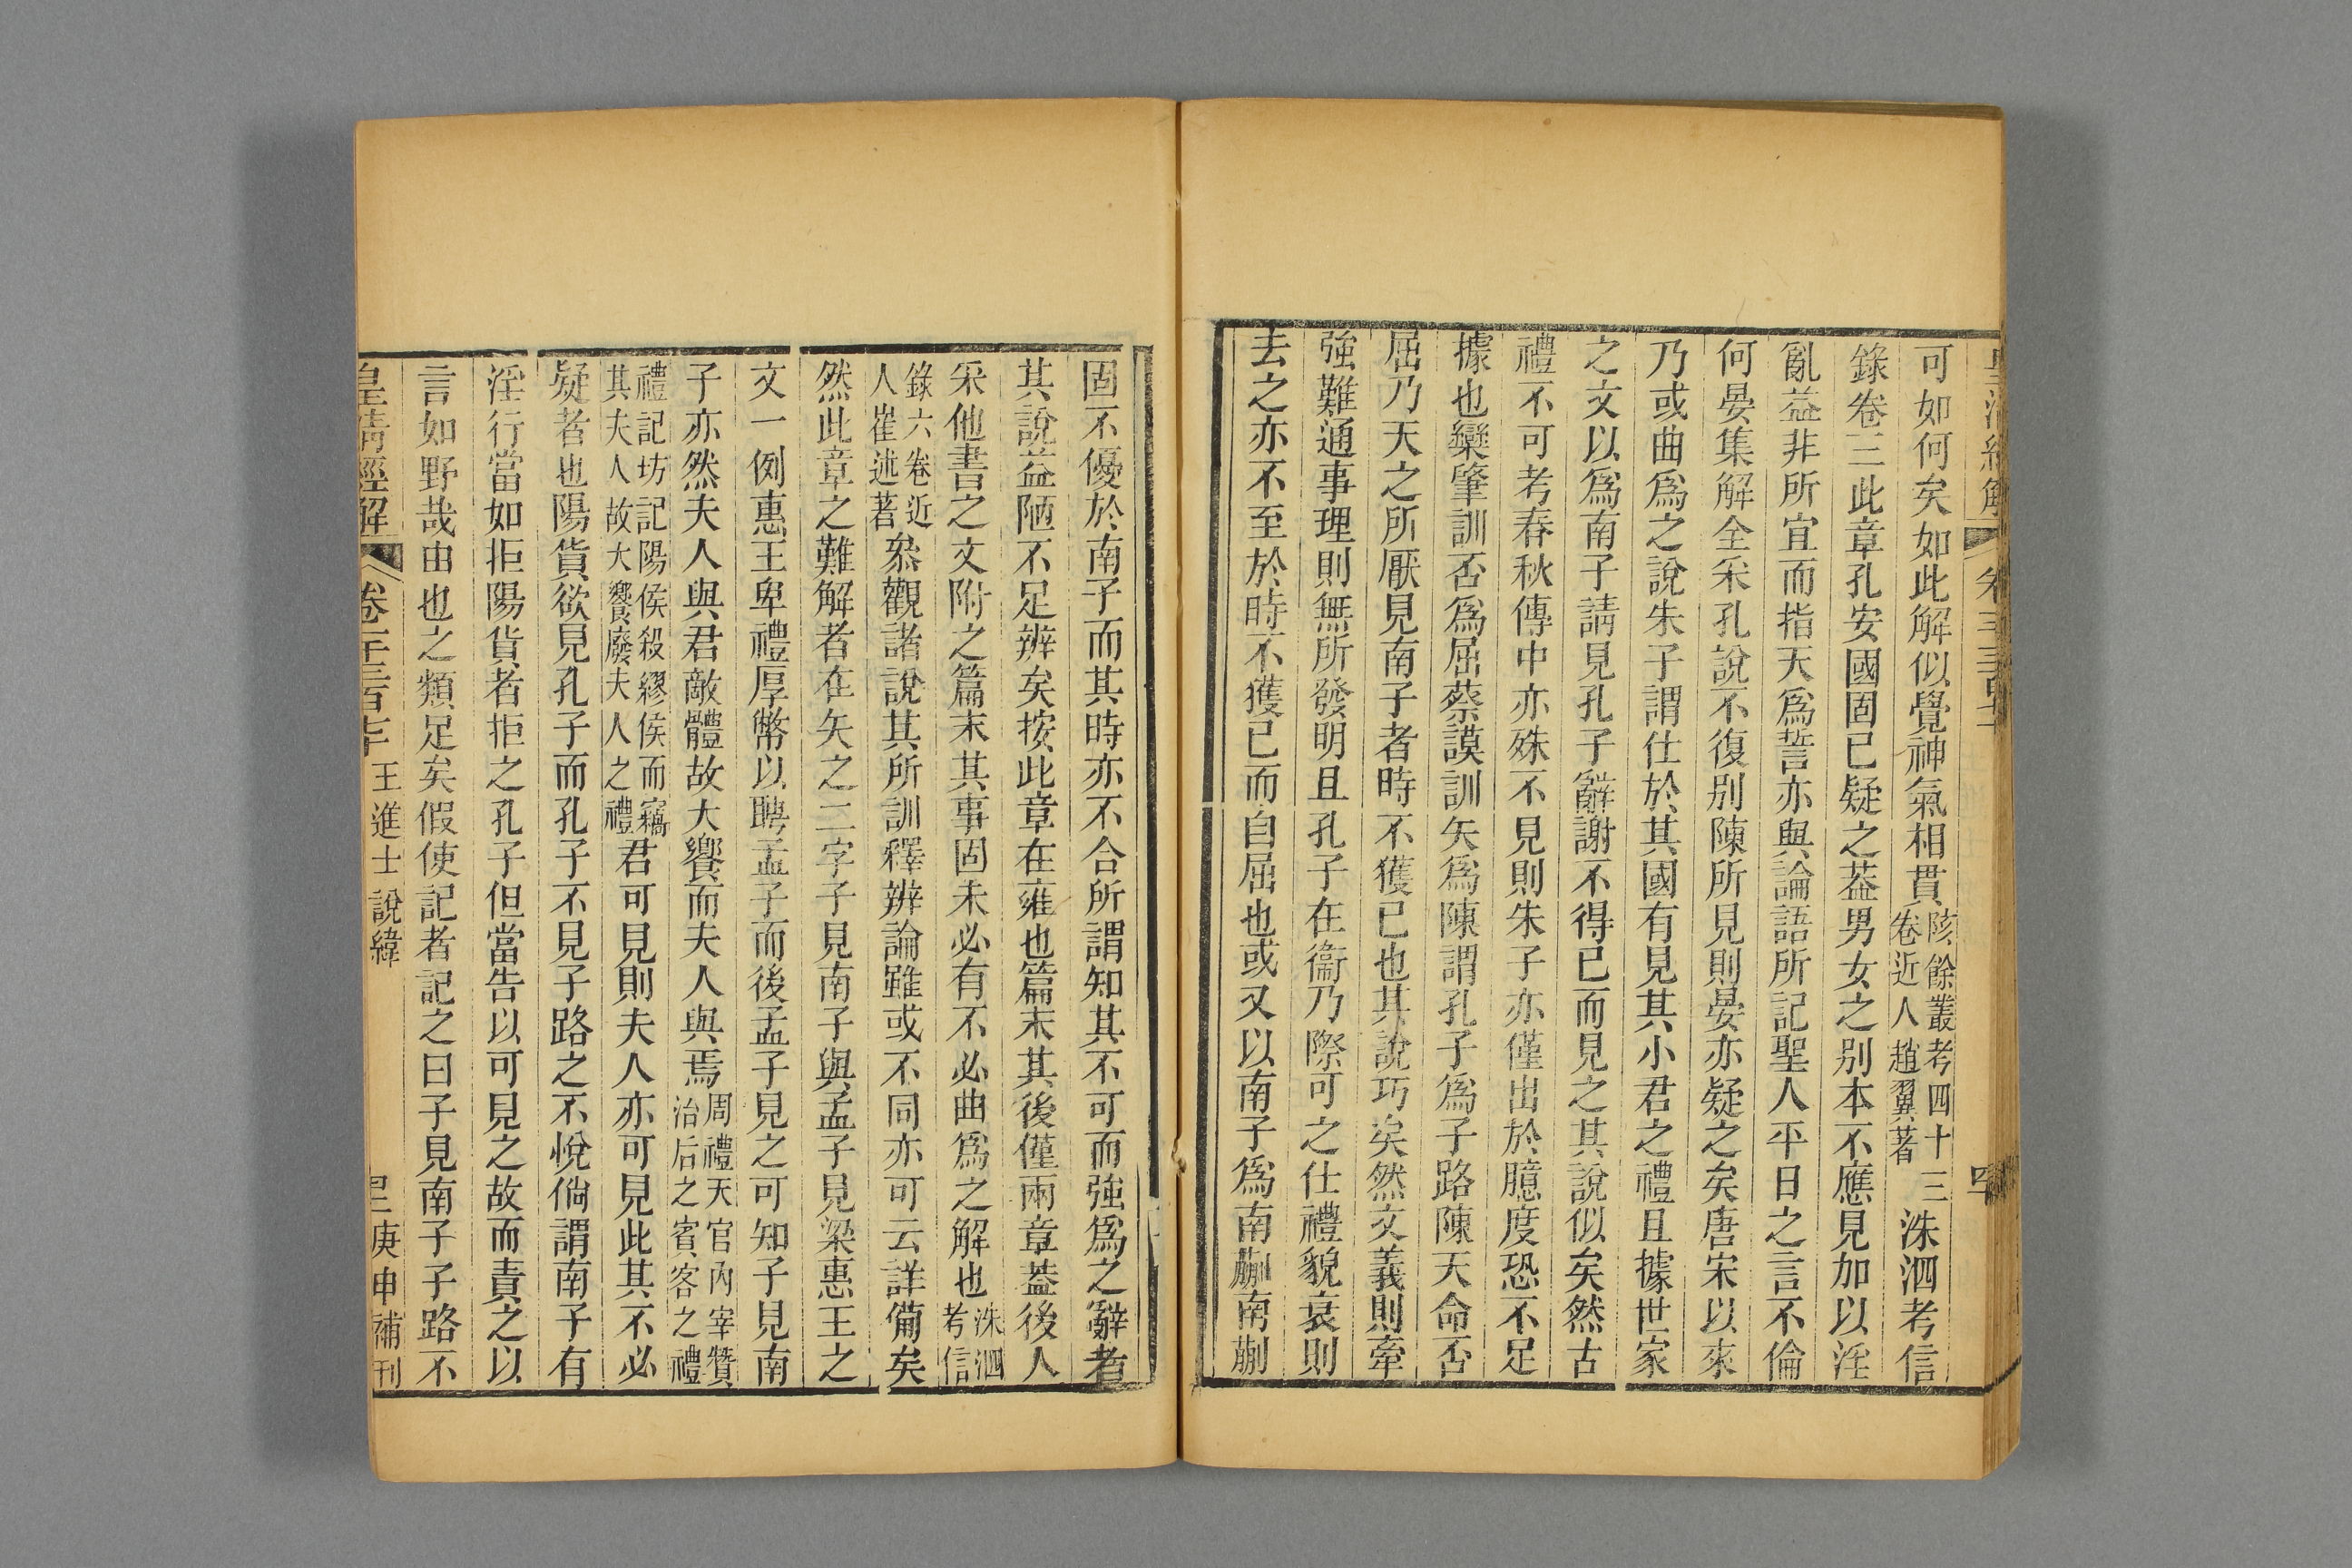 可如何矣如此解似覺神氣相貫陔餘叢考四十三卷近人趙翼著洙泗考信
錄卷三此章孔安國固已疑之葢男女之别本不應見加以淫
亂益非所宜而指天爲誓亦與論語所記聖人平日之言不倫
何晏集解全采孔說不復别陳所見則晏亦疑之矣唐宋以來
乃或曲爲之說朱子謂仕於其國有見其小君之禮且據世家
之文以爲南子請見孔子辭謝不得已而見之其說似矣然古
禮不可考春秋傳中亦殊不見則朱子亦僅出於臆度恐不足
據也欒肇訓否爲屈蔡謨訓矢爲陳謂孔子爲子路陳天命否
屈乃天之所厭見南子者時不獲已也其說巧矣然文義則牽
強難通事理則無所發明且孔子在衞乃際可之仕禮貌衰則
去之亦不至於時不獲已而自屈也或又以南子爲南蒯南蒯
固不優於南子而其時亦不合所謂知其不可而強爲之辭者
其說益陋不足辨矣按此章在雍也篇末其後僅兩章葢後人
采他書之文附之篇末其事固未必有不必曲爲之解也洙泗考信
錄六卷近人崔述著叅觀諸說其所訓釋辨論雖或不同亦可云詳備矣
然此章之難解者在矢之二字子見南子與孟子見梁惠王之
文一例惠王卑禮厚幣以聘孟子而後孟子見之可知子見南
子亦然夫人與君敵體故大饗而夫人與焉周禮天官內宰贊治后之賓客之禮
禮記坊記陽侯殺繆侯而竊其夫人故大饗廢夫人之禮君可見則夫人亦可見此其不必
疑者也陽貨欲見孔子而孔子不見子路之不悅倘謂南子有
淫行當如拒陽貨者拒之孔子但當告以可見之故而責之以
言如野哉由也之類足矣假使記者記之曰子見南子子路不
皇清經解 卷 王進士 說緯 庚申補刊